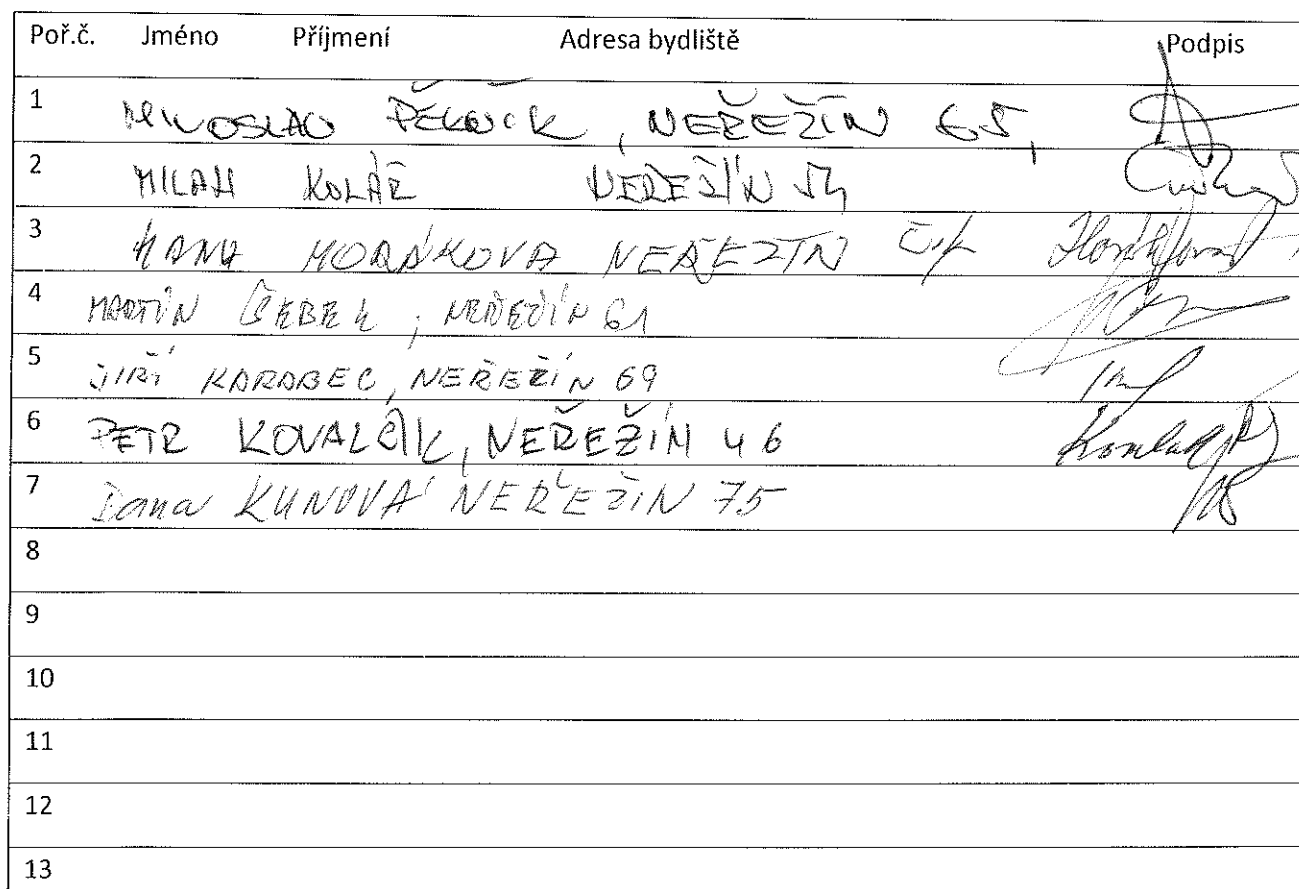 Poř.č. Jméno Příjmení Adresa bydliště Podpis
1 MILOSLAV PĚKNÍK, NEŘEŽÍN 65,
2 MILAN KOLÁŘ NEŘEŽÍN 54
3 HANA HORÁKOVA NEŘEZIN
4 MARTIN ČEBEK, NEŘEŽÍN 61
5 JIŘÍ KARABEC, NEŘEŽÍN 69
6 PETR KOVALČÍK, NEŘEŽÍN 46
7 Dana KUNOVÁ NEŘEŽIN 75
8
9
10
11
12
13